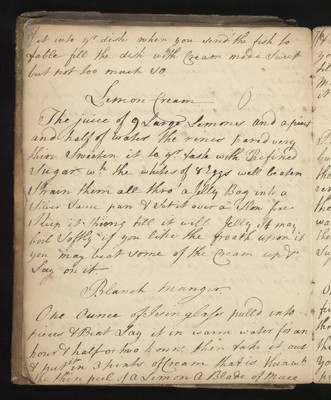 it into yr dish when you send the fish to
table fill the dish with Cream made Sweet
but not too much so
Lemon Cream
The juice of 9 Large Lemons and a pint
and half of water the rines pared very
thin Sweeten it to yr taste with Refined
Sugar wth the whites of 8 Eggs well beaten
Strain them all thro' a Jelly Bag into a
Silver Sauce pan & Set it over a Slow fire
Keep it Stiring till it will Jelly It may
boil Softly if you like the froath upon it
you may beat some of the Cream up &
Lay on it
Blanch mangor
One ounce of Isinglass pulld into
pieces & Beat Lay it in warm water for an
hour & half or two hours then take it out
& put it in 3 pints of Cream that is
the thin peel of a Lemon A Blade of Mace